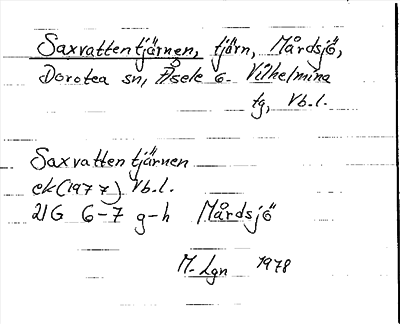 Saxvattentjärnen, tjärn, Mårdsjö,
Dorotea sn, Åsele o. Vilhelmina
tg, Vb.l.
Saxvattentjärnen
ek (1977) Vb.l.
21G 6-7 g-h Mårdsjö
M. Lgn 1978